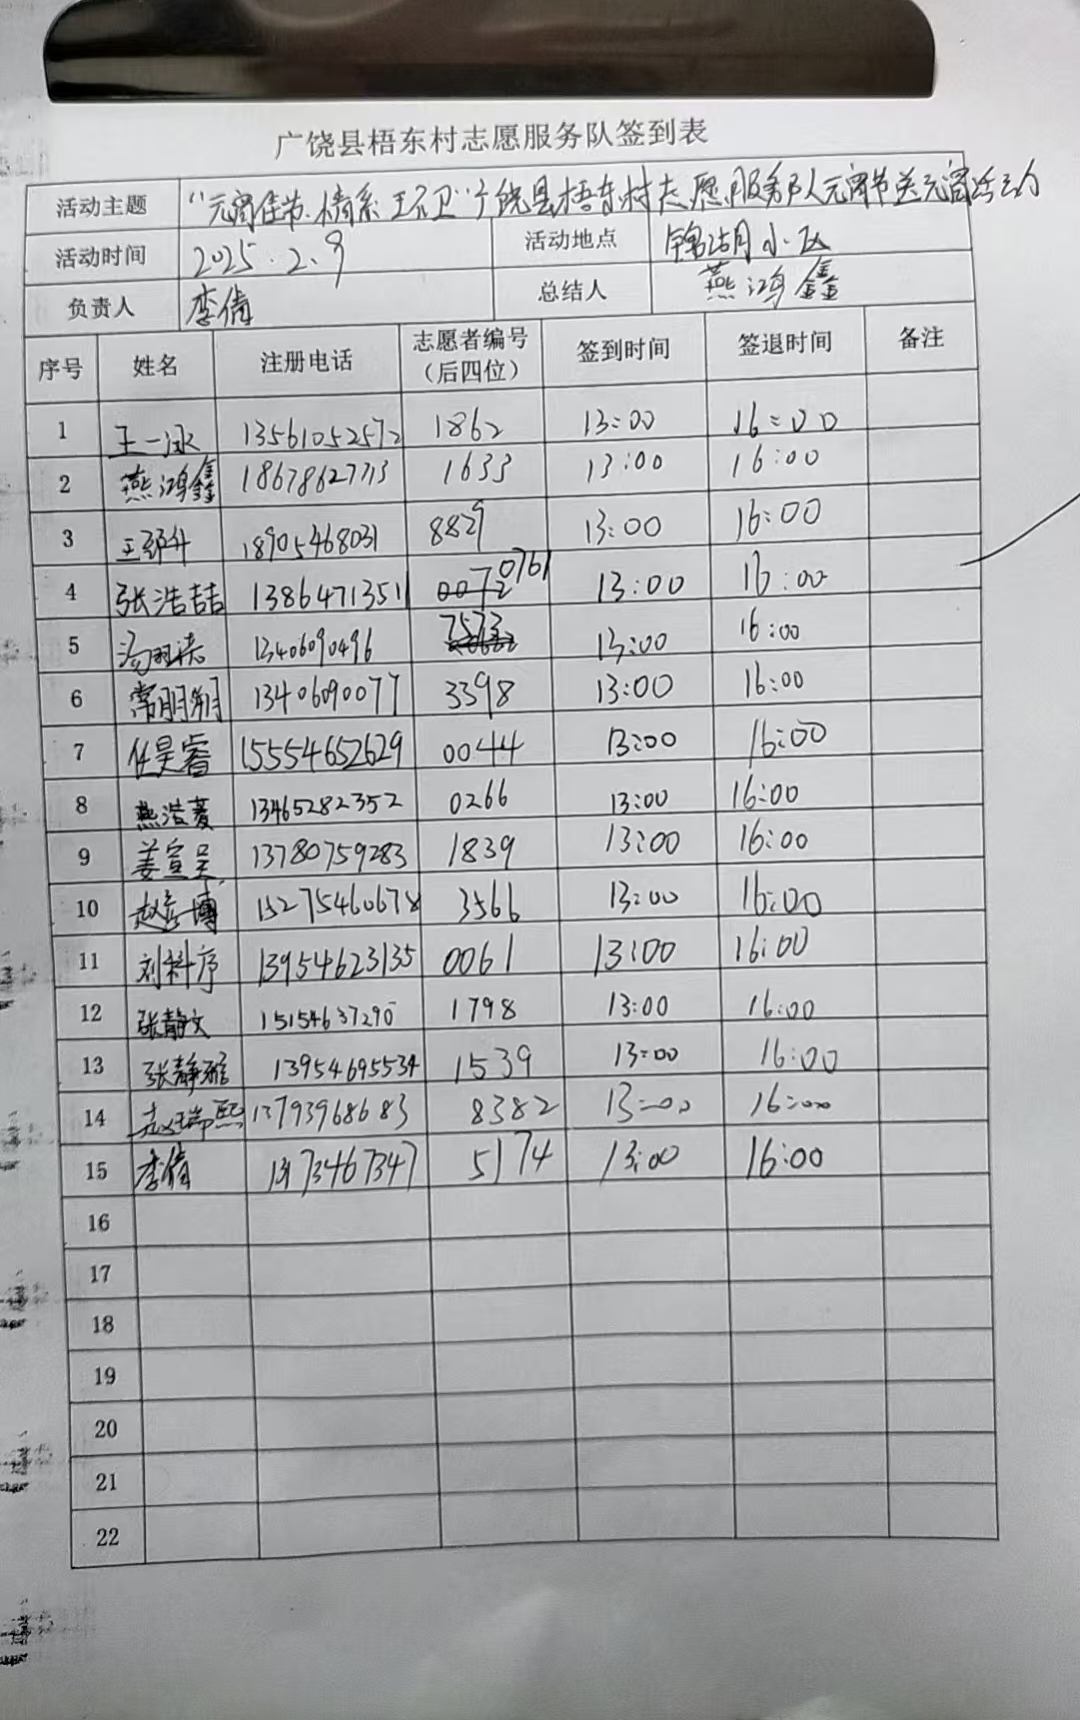 广饶县梧东村志愿服务队签到表
活动主题 "元宵佳节.情系环卫"广饶县梧东村志愿服务队元宵节送元宵活动
活动时间 2025.2.9 活动地点 锦湖小区
负责人 李倩 总结人 燕鸿鑫
序号 姓名 注册电话 志愿者编号（后四位） 签到时间 签退时间 备注
1 王一冰 13561052572 1862 13:00 16:00
2 燕鸿鑫 18678627713 1633 13:00 16:00
3 18905468031 8829 13:00 16:00
4 张浩喆 13864713511 0072 0761 13:00 16:00
5 13406090496 7573 13:00 16:00
6 常朋朔 13406090077 3398 13:00 16:00
7 任昊睿 15554652629 0044 13:00 16:00
8 燕浩菱 13465282352 0266 13:00 16:00
9 姜宣呈 13780759283 1839 13:00 16:00
10 赵彦博 15275460678 3566 13:00 16:00
11 刘科序 13954623135 0061 13:00 16:00
12 张静文 15154637290 1798 13:00 16:00
13 张静雅 13954695534 1539 13:00 16:00
14 赵瑞熙 13793968683 8382 13:00 16:00
15 李倩 13173467347 5174 13:00 16:00
16
17
18
19
20
21
22